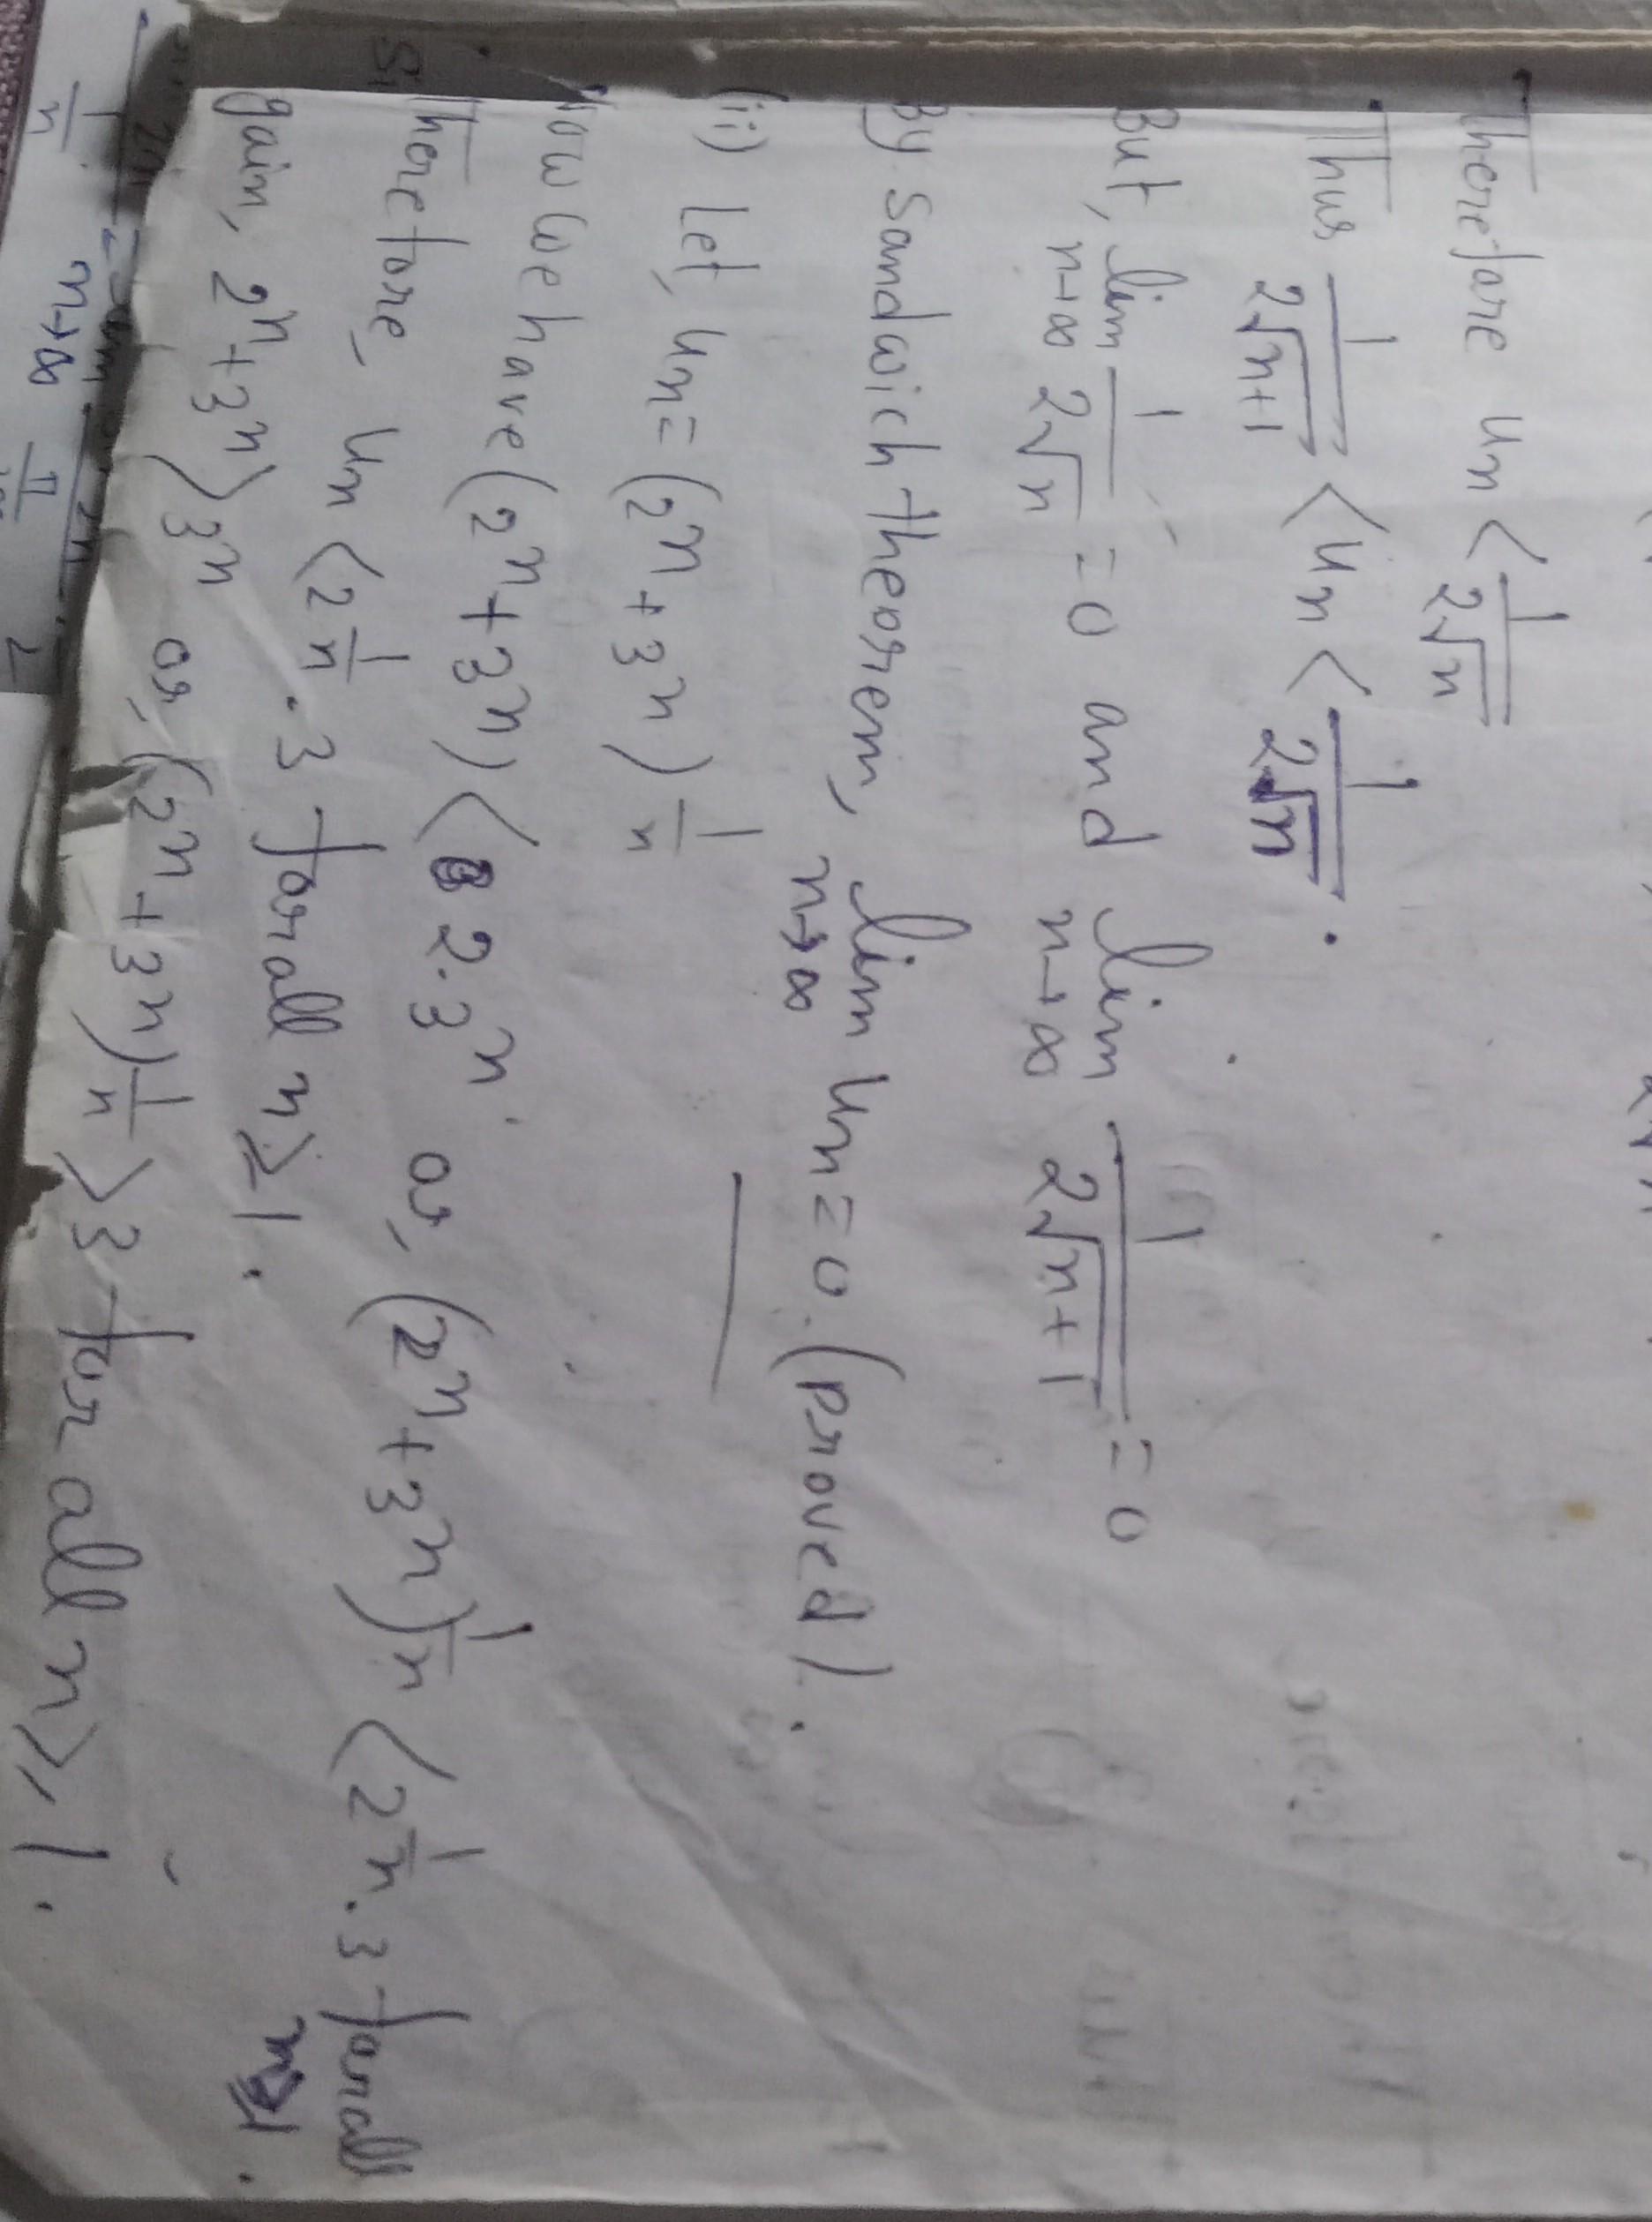 Therefore un < 1/2√n
Thus 1/2√n+1 < un < 1/2√n.
But, lim n→∞ 1/2√n = 0 and lim n→∞ 1/2√n+1 = 0
By sandwich theorem, lim n→∞ un = 0. (proved).
(ii) Let, un = (2ⁿ + 3ⁿ)^1/n
Now we have (2ⁿ + 3ⁿ) < 2.3ⁿ or, (2ⁿ + 3ⁿ)^1/n < 2^1/n . 3 for all n≥1.
Therefore, un < 2^1/n . 3 for all n ≥ 1.
gain, 2ⁿ + 3ⁿ > 3ⁿ or, (2ⁿ + 3ⁿ)^1/n > 3 for all n ≥ 1.
1/n
n→∞